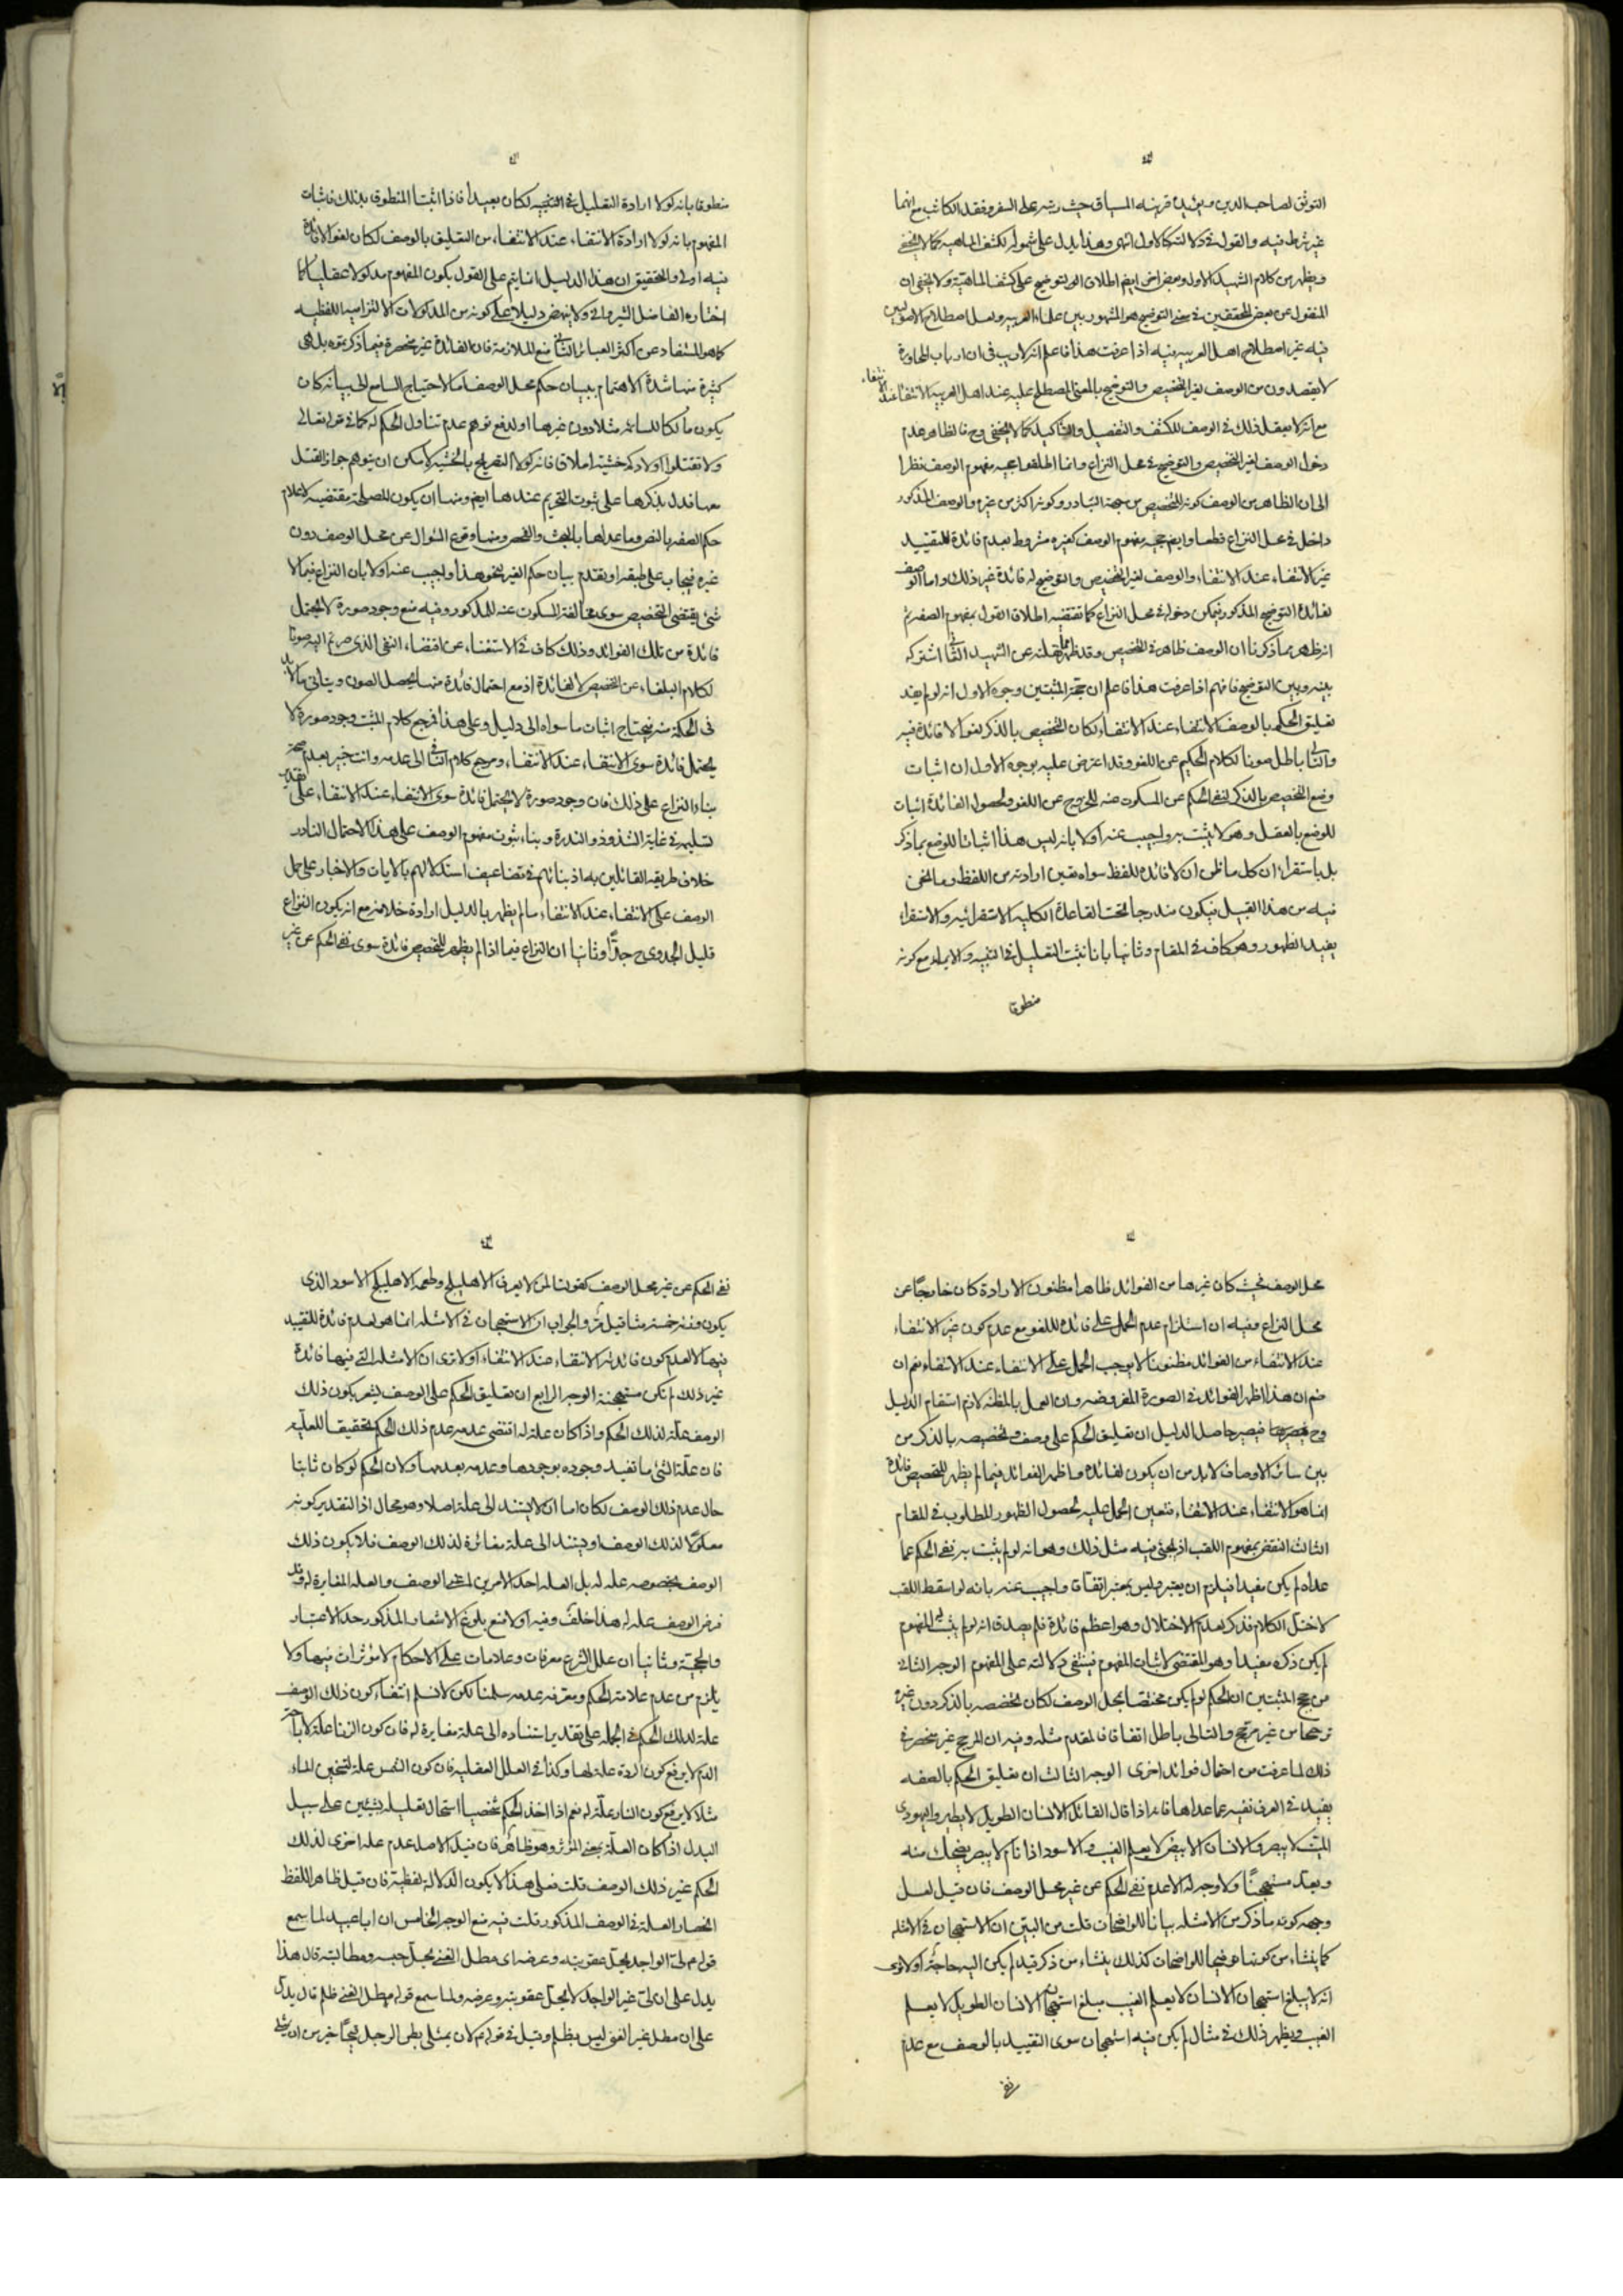 التوثق لصاحب الدين ويؤيده قرينه المساق حيث رتبه على السفر وفقد الكاتب مع انهما
غير شرط فيه والقول في دلالته كالاول انتهى وهذا يدل على شموله لكشف الماهيه كما لا يخفى
ويظهر من كلام الشهيد الاول وبعض اخر ايضا اطلاق التوضيح على كشف الماهية ولا يخفى ان
المنقول عن بعض المحققين في معنى التوضيح هو المشهور بين علماء العربيه ولعل اصطلاح الاصوليين
فيه غير اصطلاح اهل العربيه فيه اذا عرفت هذا فاعلم انه لا ريب في ان ارباب المحاورة
لا يقصدون من الوصف لغير التخصيص والتوضيح بالمعنى المصطلح عليه عند اهل العربيه الانتفاء عند الانتفاء
مع انه لا يعقل ذلك في الوصف للكشف والتفصيل والتاكيد كما لا يخفى وح فالظاهر عدم
دخول الوصف لغير التخصيص والتوضيح في محل النزاع وانما اطلقوا حجيه مفهوم الوصف نظرا
الى ان الظاهر من الوصف كونه للتخصيص من جهة التبادر وكونه اكثر من غيره والوصف المذكور
داخل في محل النزاع قطعا وايضا حجيه مفهوم الوصف كغيره مشروط بعدم فائدة للتقييد
غير الانتفاء عند الانتفاء والوصف لغير التخصيص والتوضيح له فائدة غير ذلك واما الوصف
لفائدة التوضيح المذكور فيمكن دخوله في محل النزاع كما تقتضيه اطلاق القول بمفهوم الصفه ثم
انه ظهر مما ذكرنا ان الوصف ظاهر في التخصيص وقد ظهر مما نقلته عن الشهيد الثاني اشتراكه
بينه وبين التوضيح فافهم اذا عرفت هذا فاعلم ان حجة المثبتين وجوه الاول انه لو لم يفد
تعليق الحكم بالوصف الانتفاء عند الانتفاء لكان التخصيص بالذكر لغوا لا فائدة فيه
والثاني باطل صونا لكلام الحكيم عن اللغو وقد اعترض عليه بوجوه الاول ان اثبات
وضع التخصيص بالذكر لنفي الحكم عن المسكوت عنه للخروج عن اللغو ولحصول الفائدة اثبات
للوضع بالعقل وهو لا يثبت به واجيب عنه اولا بانه ليس هذا اثباتا للوضع بما ذكر
بل باستقراء ان كل ما ظن ان لا فائدة للفظ سواه تعين ارادته من اللفظ وما نحن
فيه من هذا القبيل فيكون مندرجا تحت القاعدة الكليه الاستقرائيه والاستقراء
يفيد الظهور وهو كاف في المقام وثانيا بانا نثبت التعليل في التنبيه والايماء مع كونه
منطوقا
منطوقا بانه لولا ارادة التعليل في التنبيه لكان بعيدا فاذا اثبتنا المنطوق بذلك فاثبات
المفهوم بانه لولا ارادة الانتفاء عند الانتفاء من التعليق بالوصف لكان لغوا لا فائدة
فيه اولى والتحقيق ان هذا الدليل انما يتم على القول بكون المفهوم مدلولا عقليا كما
اختاره الفاضل الشيرواني ولا ينهض دليلا على كونه من المدلولات الالتزاميه اللفظيه
كما هو المستفاد عن اكثر العبائر الثاني منع الملازمة فان الفائدة غير منحصرة فيما ذكرتموه بل هي
كثيرة منها شدة الاهتمام ببيان حكم محل الوصف اما لاحتياج السامع الى بيانه كان
يكون مالكا للسائمه مثلا دون غيرها او لدفع توهم عدم تناول الحكم له كما في قوله تعالى
ولا تقتلوا اولادكم خشية املاق فانه لولا التصريح بالخشية لامكن ان يتوهم جواز القتل
معها فدل بذكرها على ثبوت التحريم عندها ايضا ومنها ان يكون المصلحة مقتضيه لاعلام
حكم الصفه بالنص وما عداها بالبحث والفحص ومنها وقوع السؤال عن محل الوصف دون
غيره فيجاب على طبقه او تقدم بيان حكم الغير لنحو هذا واجيب عنه اولا بان النزاع فيما لا
شئ يقتضى التخصيص سوى مخالفة المسكوت عنه للمذكور وفيه منع وجود صورة لا يحتمل
فائدة من تلك الفوائد وذلك كاف في الاستغناء عن اقتضاء النفي الذي صرتم اليه صونا
لكلام البلغاء عن التخصيص لا لفائدة اذ مع احتمال فائدة منها يحصل الصون ويتأتى ما لا بد
في الحكمة منه فيحتاج اثبات ما سواه الى دليل وعلى هذا فمرجع كلام المثبت وجود صورة لا
يحتمل فائدة سوى الانتفاء عند الانتفاء ومرجع كلام الثاني الى عدمه وانت خبير بعدم صحة
بناء النزاع على ذلك فان وجود صورة لا يحتمل فائدة سوى الانتفاء عند الانتفاء على تقدير
تسليمه في غاية الشذوذ والندرة وبناء ثبوت مفهوم الوصف على هذا الاحتمال النادر
خلاف طريقه القائلين به اذ بنائهم في تضاعيف استدلالهم بالايات والاخبار على حمل
الوصف على الانتفاء عند الانتفاء ما لم يظهر بالدليل ارادة خلافه مع انه يكون النزاع
قليل الجدوى ح جدا وثانيا ان النزاع فيما اذا لم يظهر للتخصيص فائدة سوى نفي الحكم عن غير
محل الوصف بحيث كان غيرها من الفوائد ظاهرا مظنون الارادة كان خارجا عن
محل النزاع وفيه ان استلزام عدم الحمل على فائدة للغو مع عدم كون غير الانتفاء
عند الانتفاء من الفوائد مظنونا لا يوجب الحمل على الانتفاء عند الانتفاء نعم ان
ضم ان هذا اظهر الفوائد في الصورة المفروضه وان العمل بالمظنه لازم استقام الدليل
وح فيصير حاصل الدليل ان تعليق الحكم على وصف وتخصيصه بالذكر من
بين سائر الاوصاف لا بد من ان يكون لفائدة واظهر الفوائد فيما لم يظهر للتخصيص فائدة
انما هو الانتفاء عند الانتفاء فتعين الحمل عليه لحصول الظهور المطلوب في المقام
الثالث النقض بمفهوم اللقب اذ يجئ فيه مثل ذلك وهو انه لو لم يثبت به نفي الحكم عما
عداه لم يكن مفيدا فيلزم ان يعتبر وليس بمعتبر اتفاقا واجيب عنه بانه لو اسقط اللقب
لاختل الكلام فذكره لعدم الاختلال وهو اعظم فائدة فلم يصدق انه لو لم يثبت به المفهوم
لم يكن ذكره مفيدا وهو المقتضى لاثبات المفهوم فينتفى دلالته على المفهوم الوجه الثاني
من حجج المثبتين ان الحكم لو لم يكن مختصا بمحل الوصف لكان تخصيصه بالذكر دون غيره
ترجيحا من غير مرجح والتالي باطل اتفاقا فالمقدم مثله وفيه ان المرجح غير منحصر في
ذلك لما عرفت من احتمال فوائد اخرى الوجه الثالث ان تعليق الحكم بالصفه
يفيد في العرف نفيه عما عداها فانه اذا قال القائل الانسان الطويل لا يطير واليهودي
الميت لا يبصر والانسان الابيض لا يعلم الغيب والاسود اذا نام لا يبصر يضحك منه
ويعد مستهجنا ولا وجه له الا عدم نفي الحكم عن غير محل الوصف فان قيل لعل
وجهه كونه ما ذكر من الامثله بيانا للواضحات قلت من البين ان الاستهجان في الامثله
كما ينشاء من كونها توضيحا للواضحات كذلك ينشاء من ذكر قيد لم يكن اليه حاجة اولا ترى
انه لا يبلغ استهجان الانسان لا يعلم الغيب مبلغ استهجان الانسان الطويل لا يعلم
الغيب ويظهر ذلك في مثال لم يكن فيه استهجان سوى التقييد بالوصف مع عدم
نفي
نفي الحكم عن غير محل الوصف كقولنا لمن لا يعرف الاهليلج وطعمه الاهليلج الاسود الذي
يكون وزنه خمسة مثاقيل مر والجواب ان الاستهجان في الامثله انما هو لعدم فائدة للتقييد
فيها لا لعدم كون فائدته الانتفاء عند الانتفاء اولا ترى ان الامثله التي فيها فائدة
غير ذلك لم تكن مستهجنة الوجه الرابع ان تعليق الحكم على الوصف يشعر بكون ذلك
الوصف علة لذلك الحكم واذا كان علة له اقتضى عدمه عدم ذلك الحكم تحقيقا للعليه
فان علة الشئ ما تفيد وجوده بوجودها وعدمه بعدمها ولان الحكم لو كان ثابتا
حال عدم ذلك الوصف لكان اما ان لا يستند الى علة اصلا وهو محال اذ التقدير كونه
معلولا لذلك الوصف او يستند الى علة مغائرة لذلك الوصف فلا يكون ذلك
الوصف بخصوصه علة له بل العلة احد الامرين اعني الوصف والعله المغايرة له وقد
فرض الوصف علة له هذا خلف وفيه اولا منع بلوغ الاشعار المذكور حد الاعتبار
والحجية وثانيا ان علل الشرع معرفات وعلامات على الاحكام لا مؤثرات فيها ولا
يلزم من عدم علامة الحكم ومعرفه عدمه سلمنا لكن لا نسلم انتفاء كون ذلك الوصف
علة لذلك الحكم في الجمله على تقدير استناده الى علة مغايرة له فان كون الزنا علة لاباحة
الدم لا يرفع كون الردة علة لها وكذا في العلل العقليه فان كون الشمس علة لتسخين الماء
مثلا لا يرفع كون النار علة له نعم اذا اخذ الحكم شخصيا استحال تعليله بشيئين على سبيل
البدل اذا كان العلة بمعنى المؤثر وهو ظاهر فان قيل الاصل عدم علة اخرى لذلك
الحكم غير ذلك الوصف قلت فعلى هذا لا يكون الدلالة لفظية فان قيل ظاهر اللفظ
انحصار العلة في الوصف المذكور قلت فيه منع الوجه الخامس ان ابا عبيد لما سمع
قوله م لي الواجد يحل عقوبته وعرضه اى مطل الغني يحل حبسه ومطالبته قال هذا
يدل على ان لي غير الواجد لا يحل عقوبته وعرضه ولما سمع قوله م مطل الغني ظلم قال يدل
على ان مطل غير الغنى ليس بظلم وقيل في قوله م لان يمتلى بطن الرجل قيحا خير من ان يمتلى